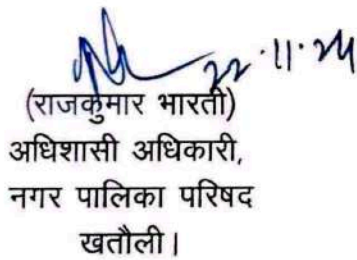 22.11.24
(राजकुमार भारती)
अधिशासी अधिकारी,
नगर पालिका परिषद
खतौली।